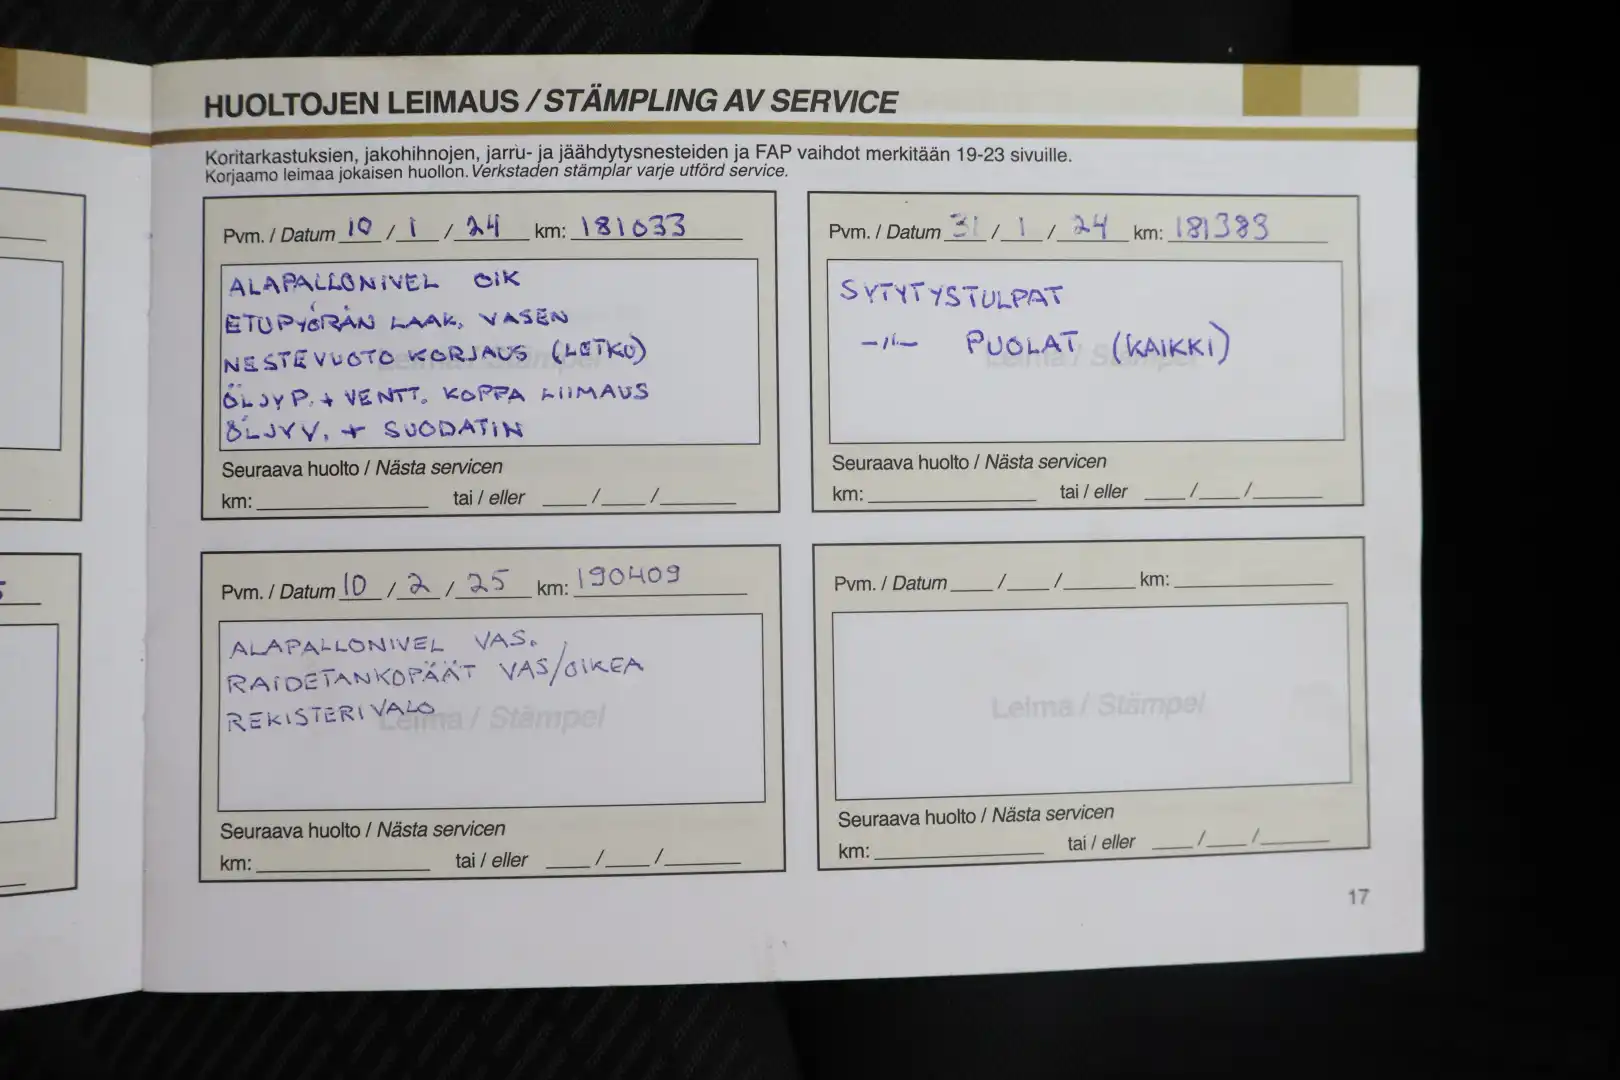 HUOLTOJEN LEIMAUS / STÄMPLING AV SERVICE
Koritarkastuksien, jakohihnojen, jarru- ja jäähdytysnesteiden ja FAP vaihdot merkitään 19-23 sivuille.
Korjaamo leimaa jokaisen huollon. Verkstaden stämplar varje utförd service.
Pvm. / Datum 10 / 1 / 24 km: 181033
ALAPALLONIVEL OIK
ETUPYÖRÄN LAAK. VASEN
NESTEVUOTO KORJAUS (LETKU)
ÖLJYP. + VENTT. KOPPA LIIMAUS
ÖLJYV. + SUODATIN
Leima / Stämpel
Seuraava huolto / Nästa servicen
km: tai / eller / /
Pvm. / Datum 31 / 1 / 24 km: 181383
SYTYTYSTULPAT
-11- PUOLAT (KAIKKI)
Leima / Stämpel
Seuraava huolto / Nästa servicen
km: tai / eller / /
Pvm. / Datum 10 / 2 / 25 km: 190409
ALAPALLONIVEL VAS.
RAIDETANKOPÄÄT VAS/OIKEA
REKISTERIVALO
Leima / Stämpel
Seuraava huolto / Nästa servicen
km: tai / eller / /
Pvm. / Datum / / km:
Leima / Stämpel
Seuraava huolto / Nästa servicen
km: tai / eller / /
17